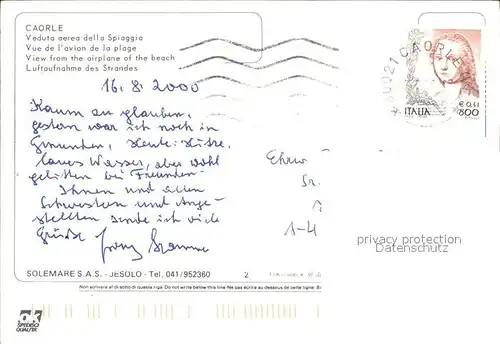 CAORLE
Veduta aerea della Spiaggia
Vue de l'avion de la plage
View from the airplane of the beach
Luftaufnahme des Strandes
CAORLE
ITALIA
€ 0,41
800
16.8.2000
Kaum zu glauben,
gestern war ich noch in
Gmunden, Heute: Hitze,
laues Wasser, aber wohl
gelitten bei Freunden
Ihnen und allen
Schwestern und Ange-
stellten sende ich viele
Grüße
Ehrw
Sr.
1-4
privacy protection
Datenschutz
SOLEMARE S.A.S. - JESOLO - Tel. 041/952360
2
Non scrivere al di sotto di questa riga. Do not write below this line Ne pas écrire au dessous de cette ligne
OK
SPEDISCI
QUALITA'